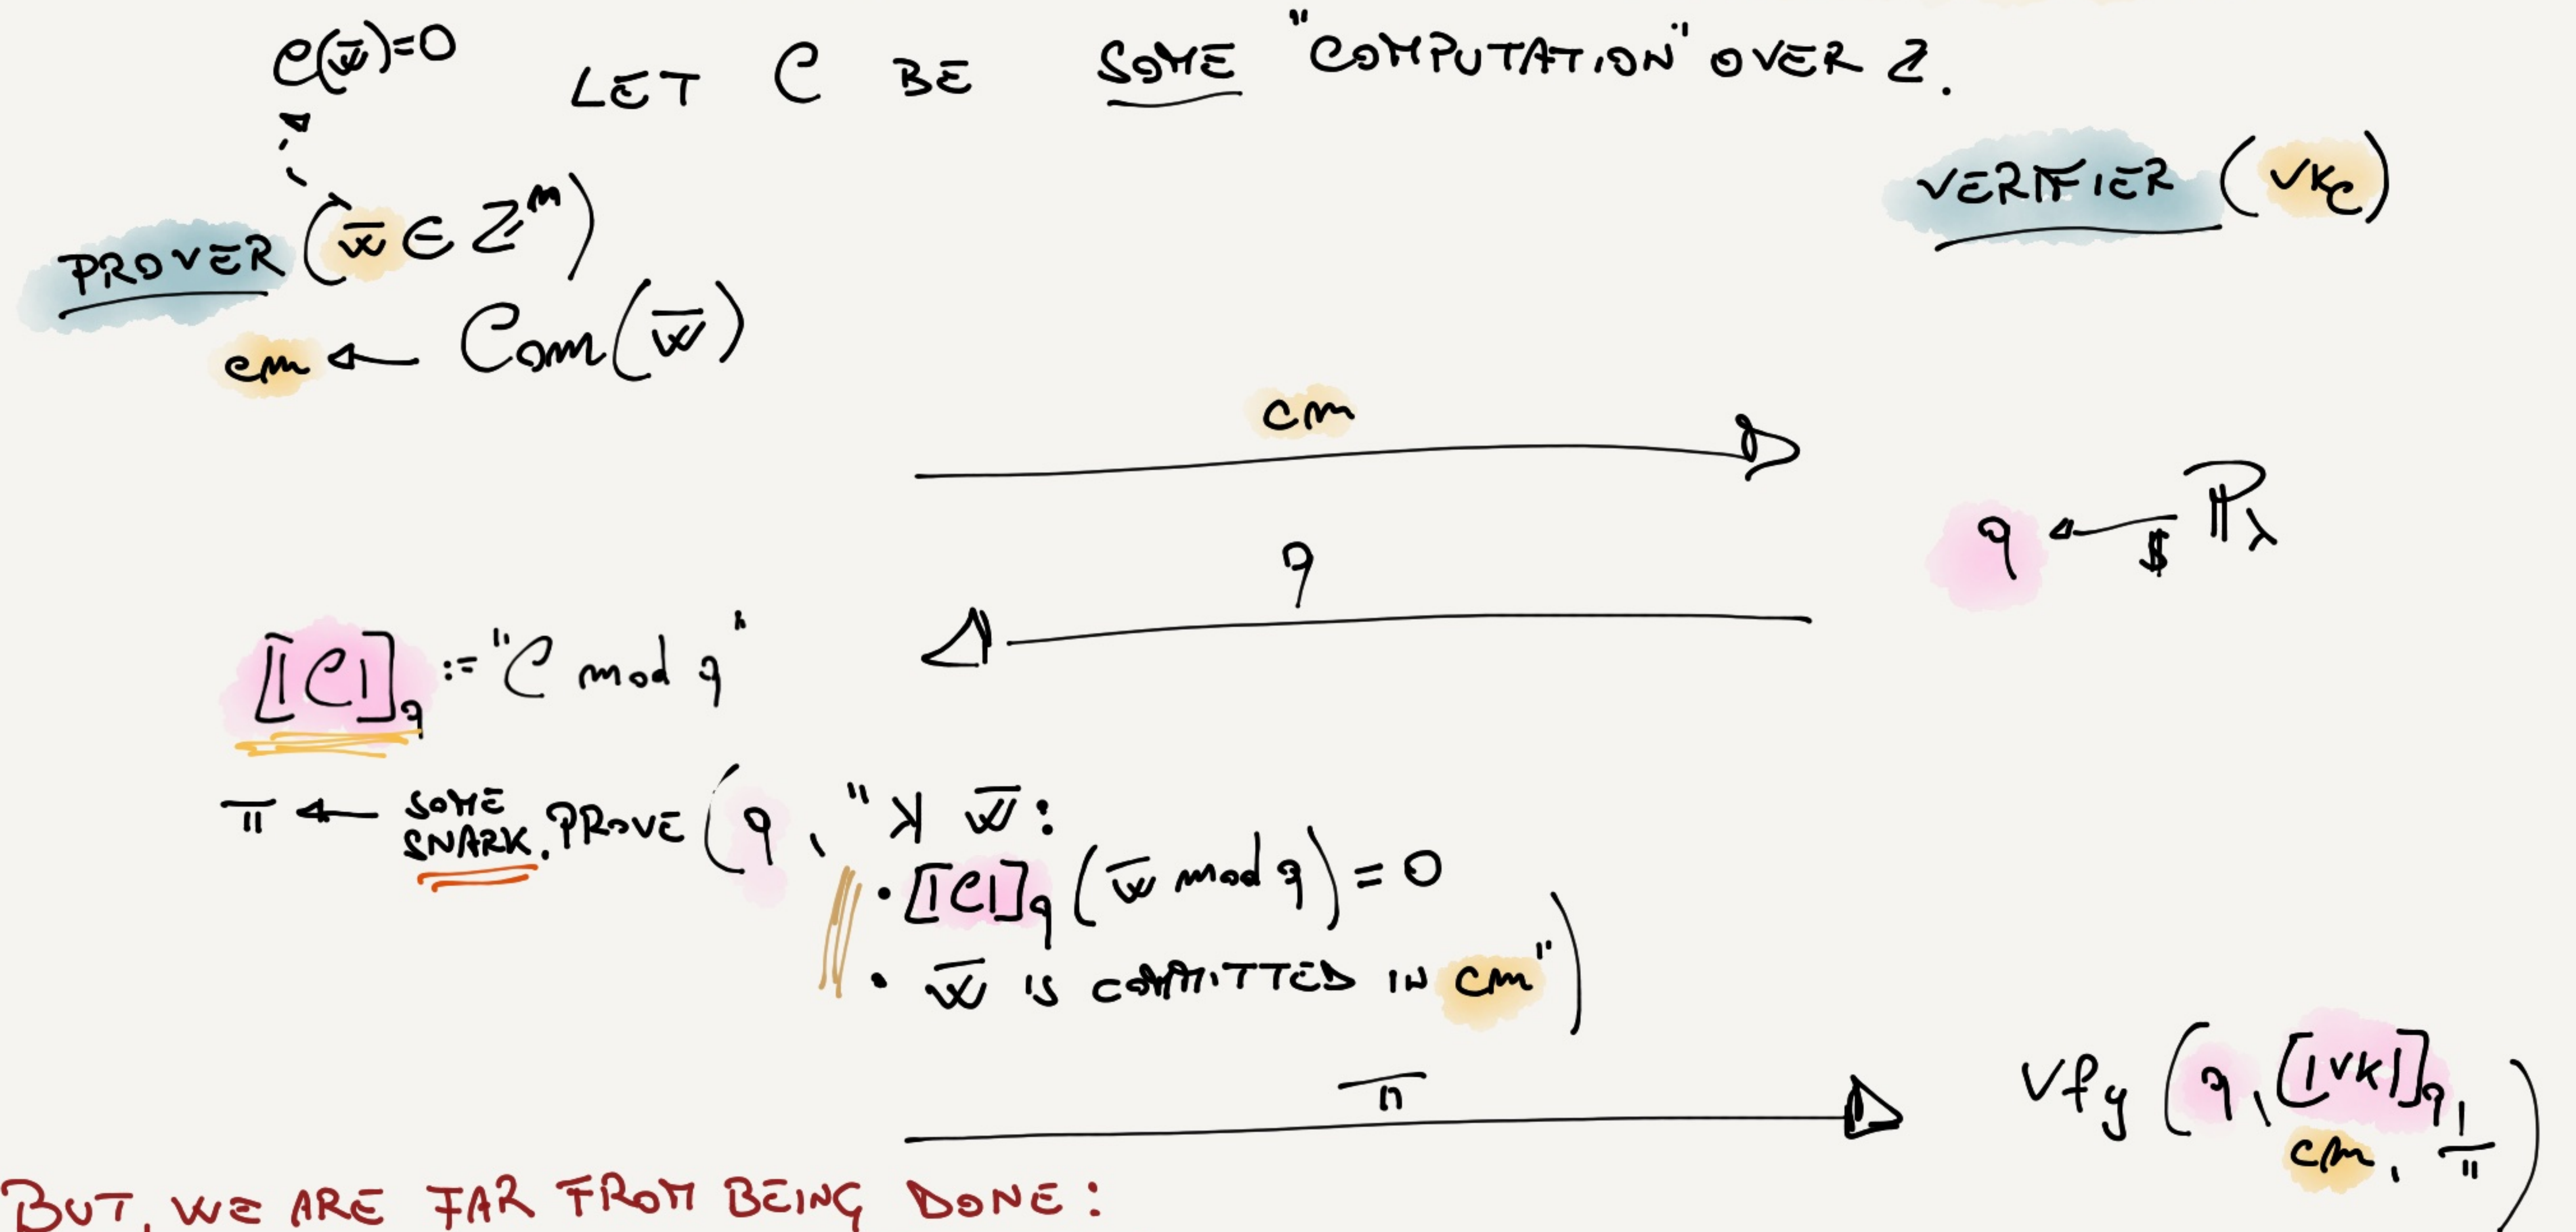 C(w̄)=0
LET C BE SOME "COMPUTATION" OVER Z.
PROVER (w̄ ∈ Z^m)
VERIFIER (vk_C)
cm ← Com(w̄)
cm
q ←$ ℙ_λ
q
[|C|]_q := "C mod q"
π ← SOME SNARK.PROVE (q, "∃ w̄:
• [|C|]_q (w̄ mod q) = 0
• w̄ IS COMMITTED IN cm")
π
Vfy (q, [|vk|]_q, cm, π)
BUT, WE ARE FAR FROM BEING DONE: